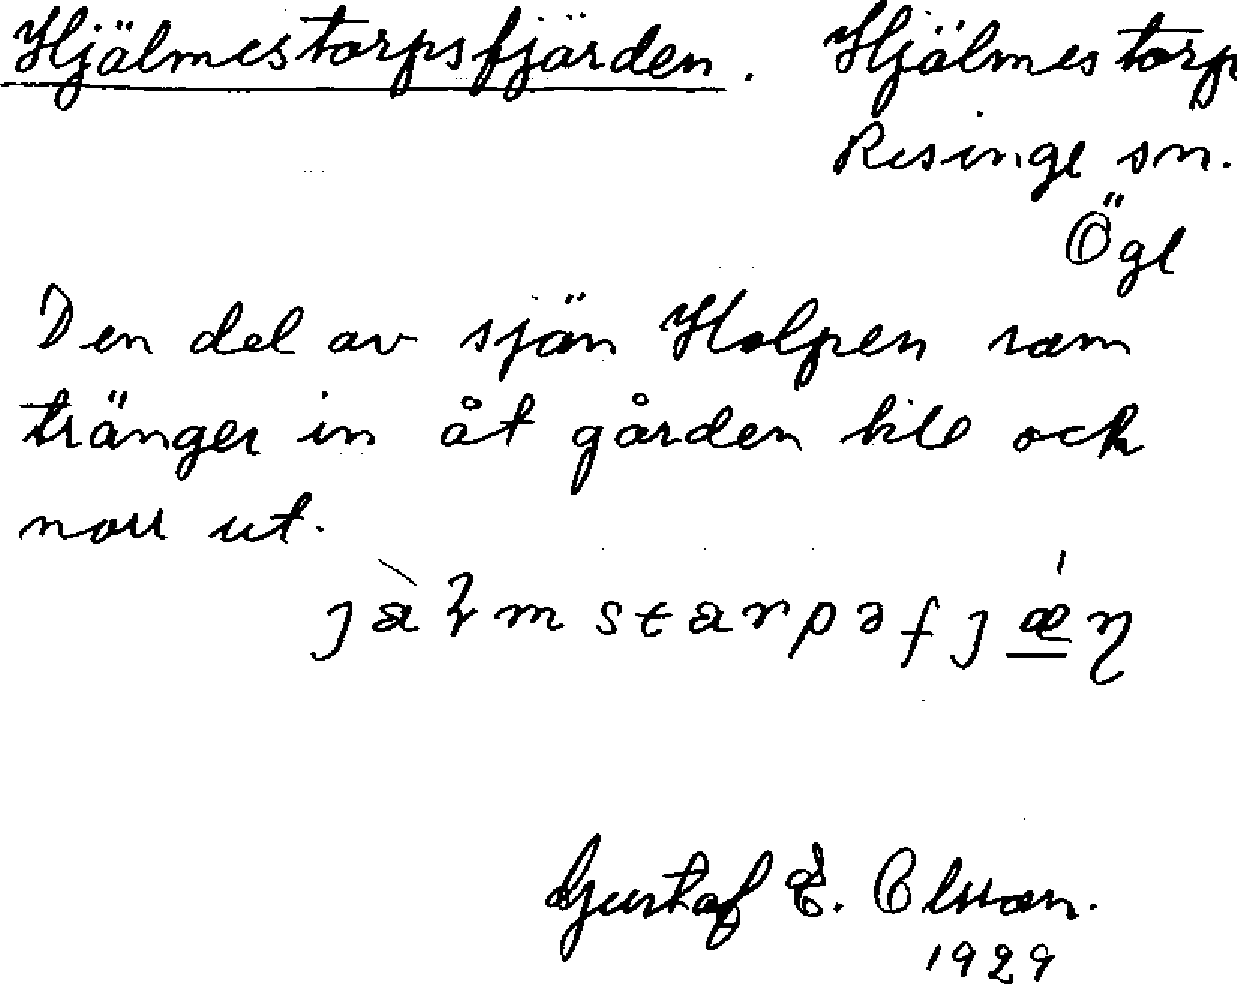 Hjälmestorpsfjärden. Hjälmestorp
Risinge sn.
Ögl
Den del av sjön Holpen som
tränger in åt gården till och
norr ut.
Gustaf E. Olsson.
1929